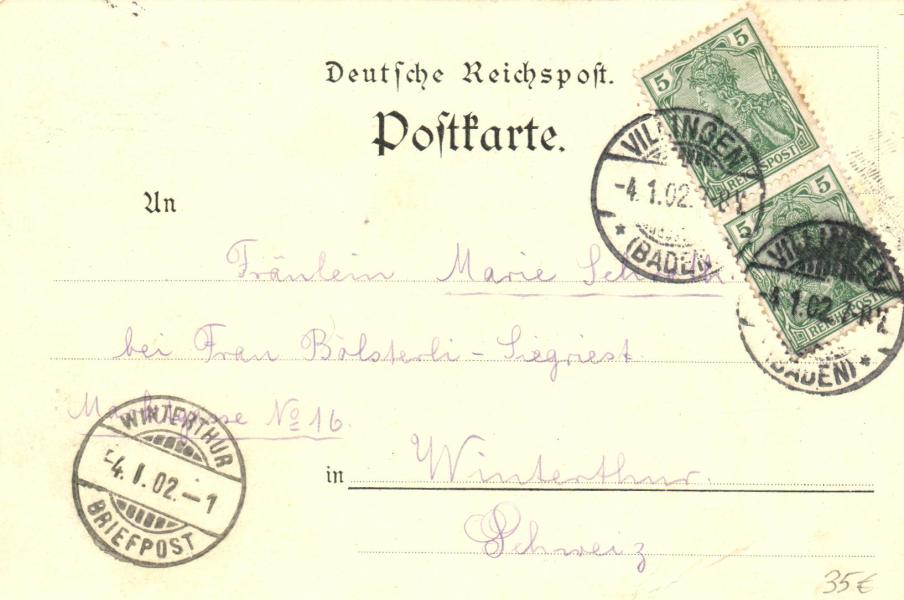 Deutsche Reichspost.
Postkarte.
An
Fräulein Marie
bei Frau Bölsterli-Siegriest
Marktgasse No 16.
in Winterthur.
Schweiz
5
5
REICHSPOST
5
5
REICHSPOST
VILLINGEN
-4.1.02.
* (BADEN)
VILLINGEN
-4.1.02.
(BADEN) *
WINTERTHUR
-4.I.02.-1
BRIEFPOST
35€